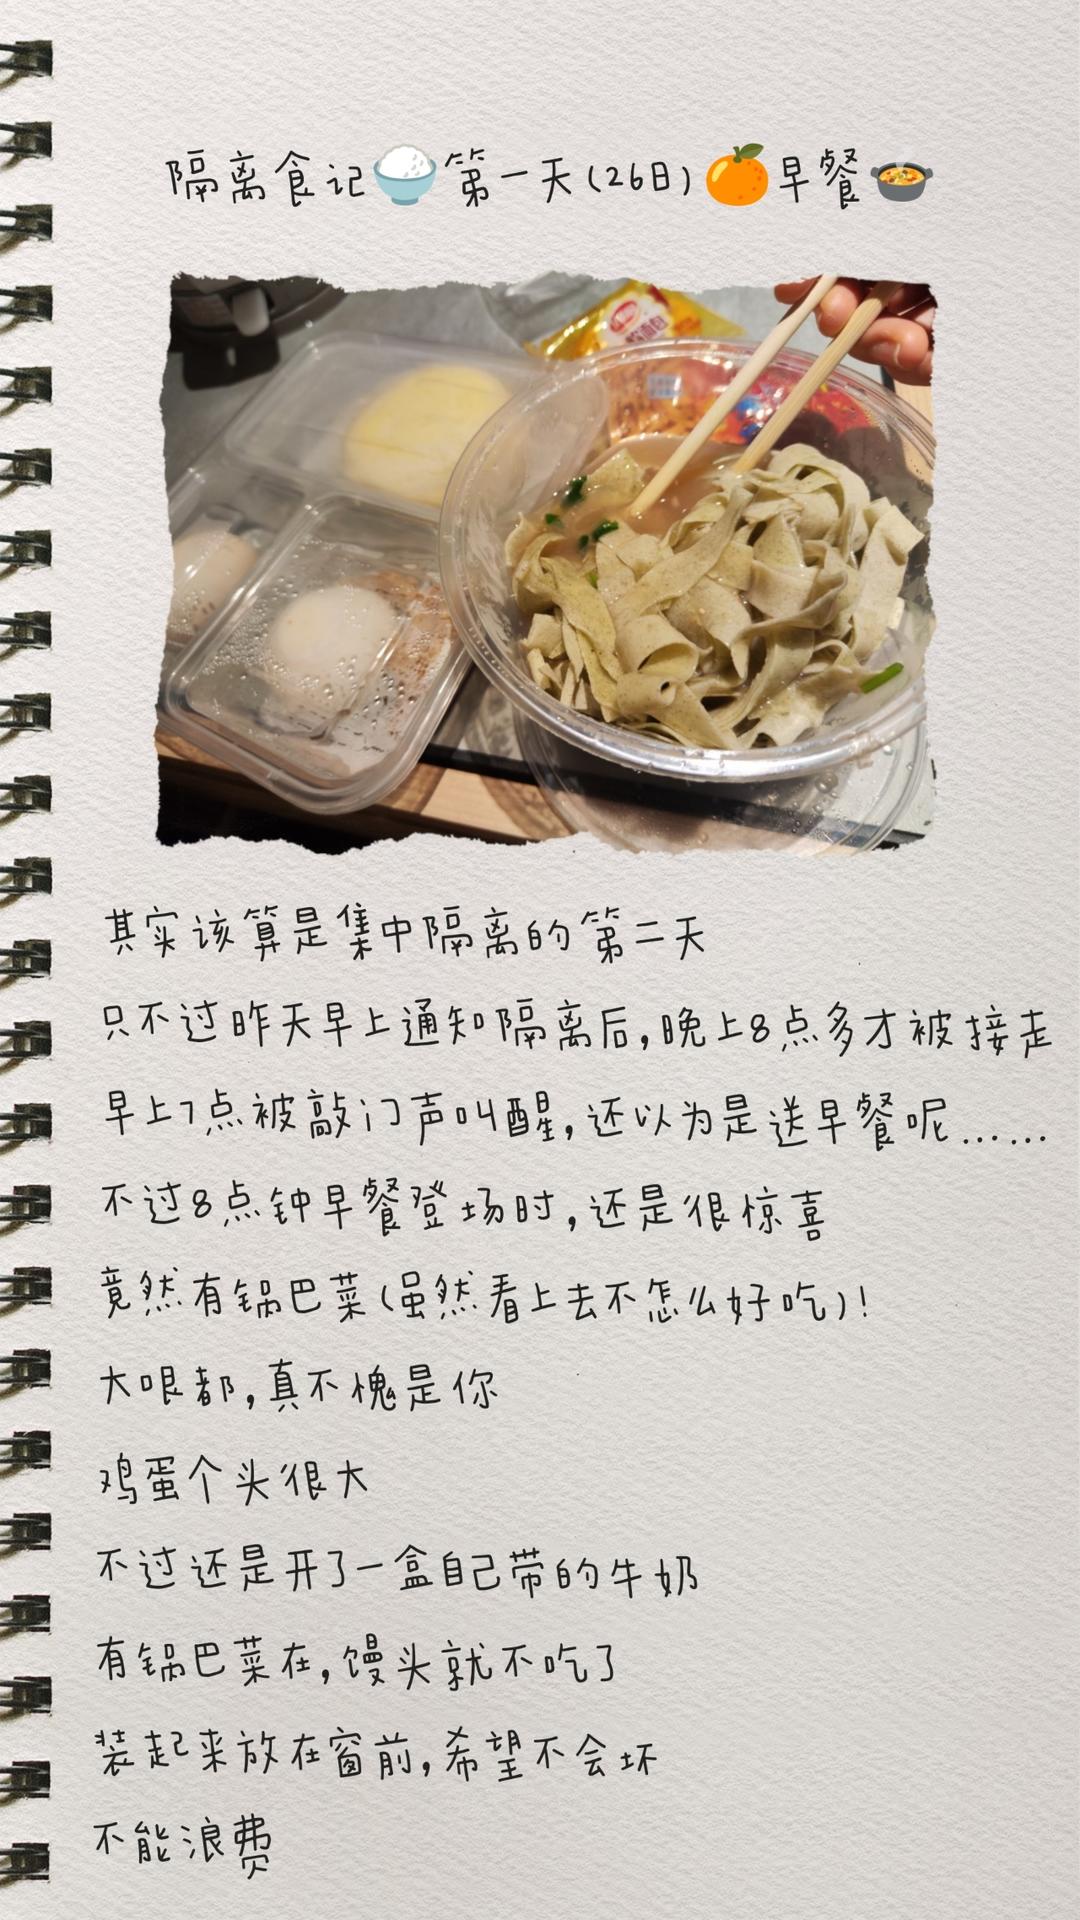 隔离食记🍚第一天(26日)🍊早餐🍲
软面包
其实该算是集中隔离的第二天
只不过昨天早上通知隔离后,晚上8点多才被接走
早上7点被敲门声叫醒,还以为是送早餐呢……
不过8点钟早餐登场时,还是很惊喜
竟然有锅巴菜(虽然看上去不怎么好吃)!
大哏都,真不愧是你
鸡蛋个头很大
不过还是开了一盒自己带的牛奶
有锅巴菜在,馒头就不吃了
装起来放在窗前,希望不会坏
不能浪费